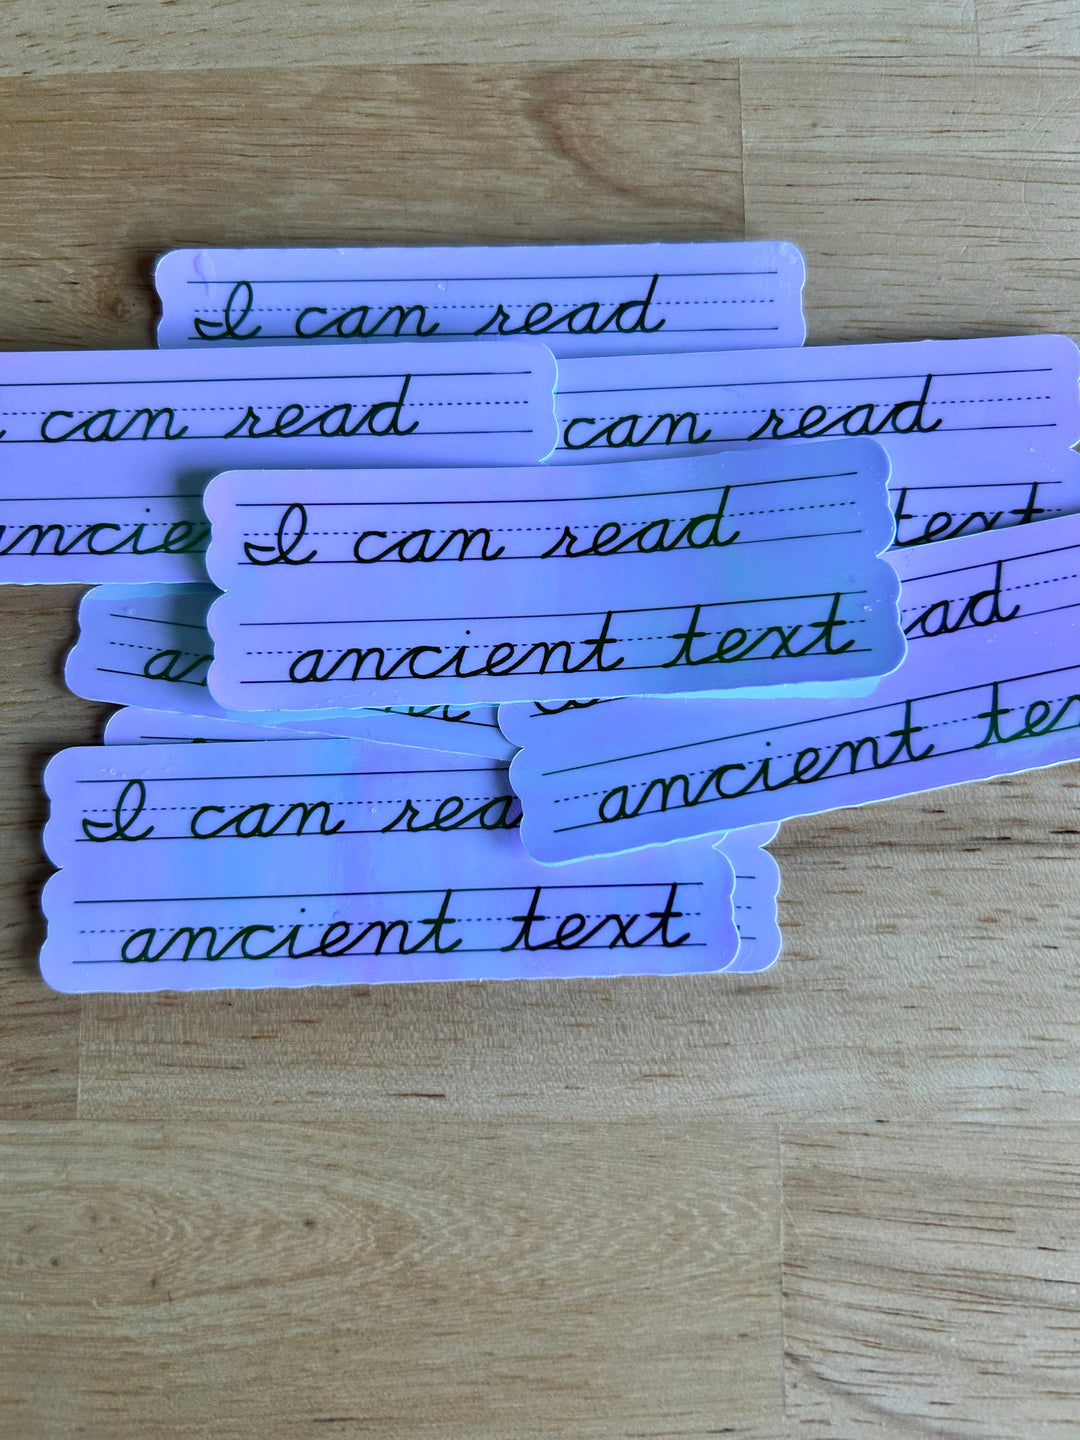 I can read
can read
can read
ancie
text
I can read
ancient text
ad
an
ancient tex
I can rea
ancient text